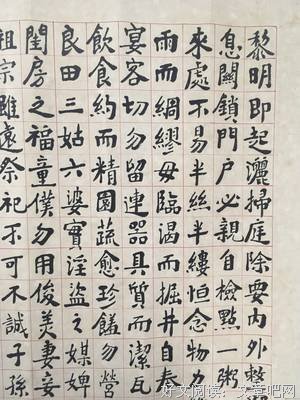 黎明即起灑掃庭除要內外整
息關鎖門戶必親自檢點一粥
來處不易半絲半縷恒念物力
雨而綢繆毋臨渴而掘井自奉
宴客切勿留連器具質而潔瓦
飲食約而精園蔬愈珍饈勿營
良田三姑六婆實淫盜之媒婢
閨房之福童僕勿用俊美妻妾
祖宗雖遠祭祀不可不誠子孫
好文阅读：文章吧网